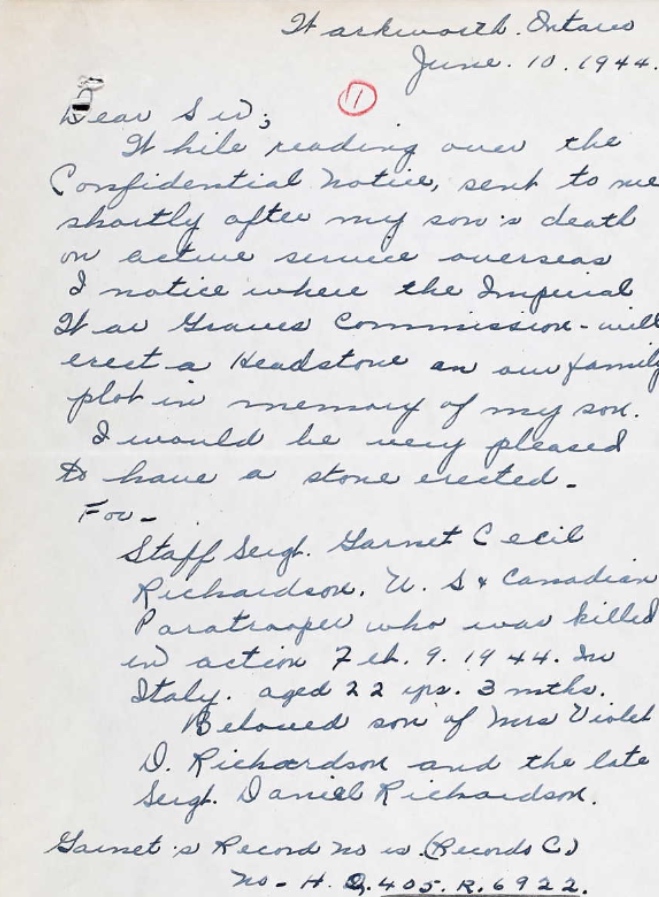 Warkworth. Ontario
June. 10. 1944.
11
Dear Sir;
While reading over the
Confidential Notice, sent to me
shortly after my son's death
on active service overseas
I notice where the Imperial
War Graves Commission - will
erect a Headstone on our family
plot in memory of my son.
I would be very pleased
to have a stone erected -
For -
Staff Sergt. Garnet Cecil
Richardson. U. S & Canadian
Paratrooper who was killed
in action Feb. 9. 1944. In
Italy. aged 22 yrs. 3 mths.
Beloved son of Mrs Violet
D. Richardson and the late
Sergt. Daniel Richardson.
Garnet's Record No is (Records C.)
No - H. Q. 405. R. 6922.